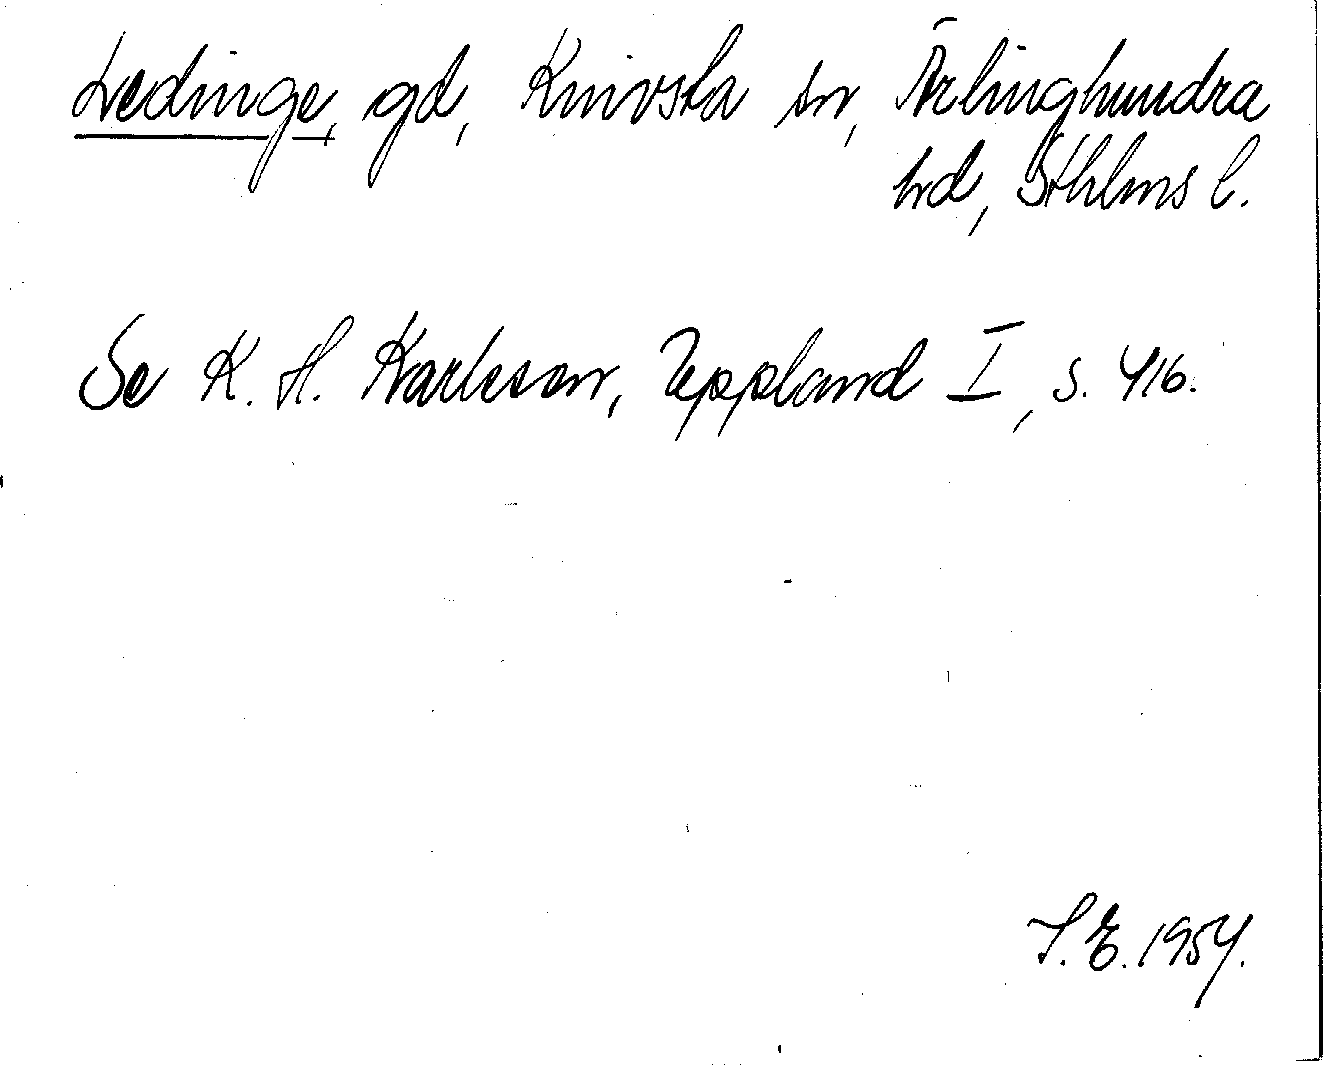 Ledinge, gd, Knivsta sn, Ärlinghundra
hd, Sthlms l.
Se K. H. Karlsson, Uppland I, s. 416.
S. E. 1954.